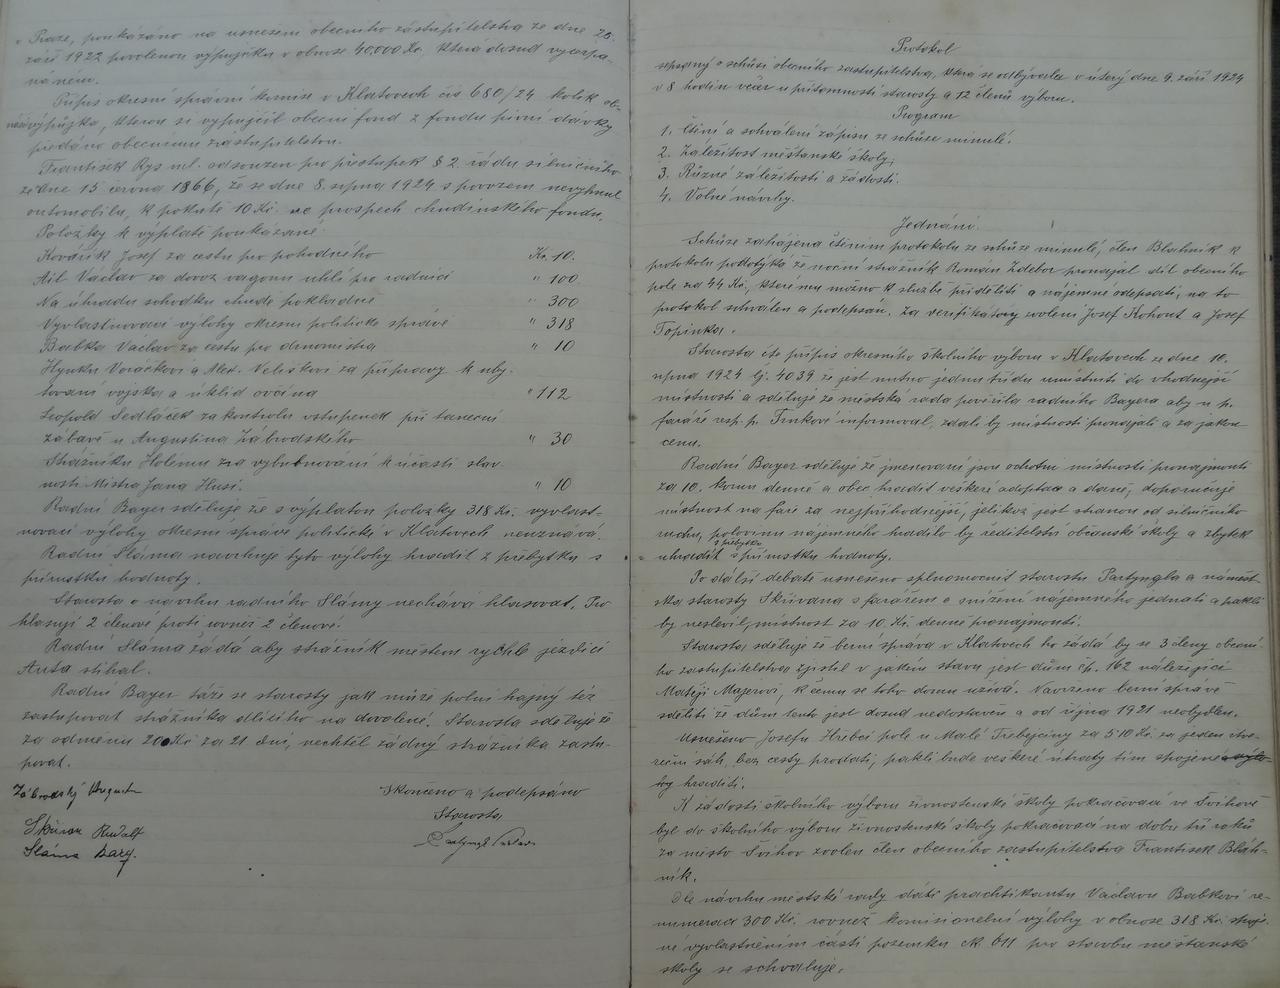 v Praze, poukázáno na usnesení obecního zástupitelstva ze dne 25.
září 1922 povolenou výpujčku v obnose 40.000 Kč, která dosud vyčerpá-
na není.
Přípis okresní správní komise v Klatovech čís 680/24 kolik ob-
výpůjčka, kterou si vypujčil obecní fond z fondu pivní dávky
předáno obecnímu zástupitelstvu.
František Rys ml. odsouzen pro přestupek § 2. řádu silničního
ze dne 15 června 1866, že se dne 8. srpna 1924 s povozem nevyhnul
automobilu, k pokutě 10 Kč. ve prospěch chudinského fondu.
Položky k výplatě poukázané:
Kovářík Josef za cestu pro pohodného Kč. 10.
Ail Václav za dovoz vagonu uhlí pro radnici " 100
Na úhradu schodku chudé pokladně " 300
Vyvlastňovací výlohy okresní politické správě " 318
Babka Václav za cestu pro drnomistra " 10
Hynku Voráčkovi a Alex. Veleškovi za přípravy k uby-
tování vojska a úklid ovčína " 112
Leopold Sedláček za kontrolu vstupenek při taneční
zábavě u Augustina Zábrodského " 30
Strážníku Holému za vybubnování k účasti slav-
nosti Mistra Jana Husi. " 10
Radní Bayer sděluje že s výplatou položky 318 Kč. vyvlast-
ňovací výlohy okresní správě politické v Klatovech neuznává.
Radní Sláma navrhuje tyto výlohy hraditi z přebytku s
přírustku hodnoty.
Starosta o návrhu radního Slámy nechává hlasovat. Pro
hlasují 2 členové proti rovněž 2 členové.
Radní Sláma žádá aby strážník městem rychle jezdící
Auta stíhal.
Radní Bayer táže se starosty jak může polní hajný též
zastupovat strážníka dlícího na dovolené. Starosta sděluje že
za odměnu 200 Kč za 21 dní, nechtěl žádný strážníka zastu-
povat.
Zábrodský August
Skončeno a podepsáno
Starosta
Skřivan Rudolf
Sláma Bary.
Protokol
sepsaný o schůzi obecního zastupitelstva, která se odbývala v úterý dne 9. září 1924
v 8 hodin večer u přítomnosti starosty a 12 členů výboru.
Program
1. Čtení a schválení zápisu ze schůze minulé.
2. Záležitost měšťanské školy,
3. Různé záležitosti a žádosti.
4. Volné návrhy.
Jednání.
Schůze zahájena čtením protokolu ze schůze minulé, člen Blahník k
protokolu podotýká že noční strážník Román Zdebor pronajal díl obecního
pole za 44 Kč, které nu možno k službě přiděliti a nájemné odepsati, na to
protokol schválen a podepsán. Za verifikátory zvoleni Josef Kohout a Josef
Topinka.
Starosta čte přípis okresního školního výboru v Klatovech ze dne 10.
srpna 1924 čj. 4039 že jest nutno jednu třídu umístniti do vhodnější
místnosti a sděluje že městská rada pověřila radního Bayera aby u p.
faráře resp. p. Trnkové informoval, zdali by místnosti pronajali a za jakou
cenu.
Radní Bayer sděluje že jmenovaní jsou ochotni místnosti pronajmouti
za 10. korun denně a obec hradit veškeré adoptace a daně, doporučuje
místnost na faře za nejpříhodnější, jelikož jest stranou od silničního
ruchu, polovinu nájemného hradilo by ředitelství občanské školy a zbytek
z přebytku
uhradit s přírustku hodnoty.
Po další debatě usneseno splnomocnit starostu Partyngla a náměst-
ka starosty Skřivana s farářem o snížení nájemného jednati a pakli
by neslevil, místnost za 10. Kč. denně pronajmouti.
Starosta sděluje že berní správa v Klatovech ho žádá by se 3 členy obecní-
ho zastupitelstva zjistil v jakém stavu jest dům čp. 162 náležející
Matěji Majerovi, k čemu se toho domu užívá. Navrženo berní správě
sděliti že dům tento jest dosud nedostavěn a od října 1921 neobydlen.
Usnešeno Josefu Hřebci pole u Malé Třebejčiny za 510 Kč. za jeden čtve-
reční sáh, bez cesty prodati, pakli bude veškeré útraty tím spojené
hraditi.
K žádosti školního výboru živnostenské školy pokračovací ve Švihově
byl do školního výboru živnostenské školy pokračovací na dobu tří roků
za místo Švihov zvolen člen obecního zastupitelstva František Blah-
ník.
Dle návrhu městské rady dáti prachtikantu Václavu Babkovi re-
muneraci 300 Kč. rovněž komisionelní výlohy v obnose 318 Kč. spoje-
né vyvlastněním části pozemku čk 611 pro stavbu měšťanské
školy se schvaluje.